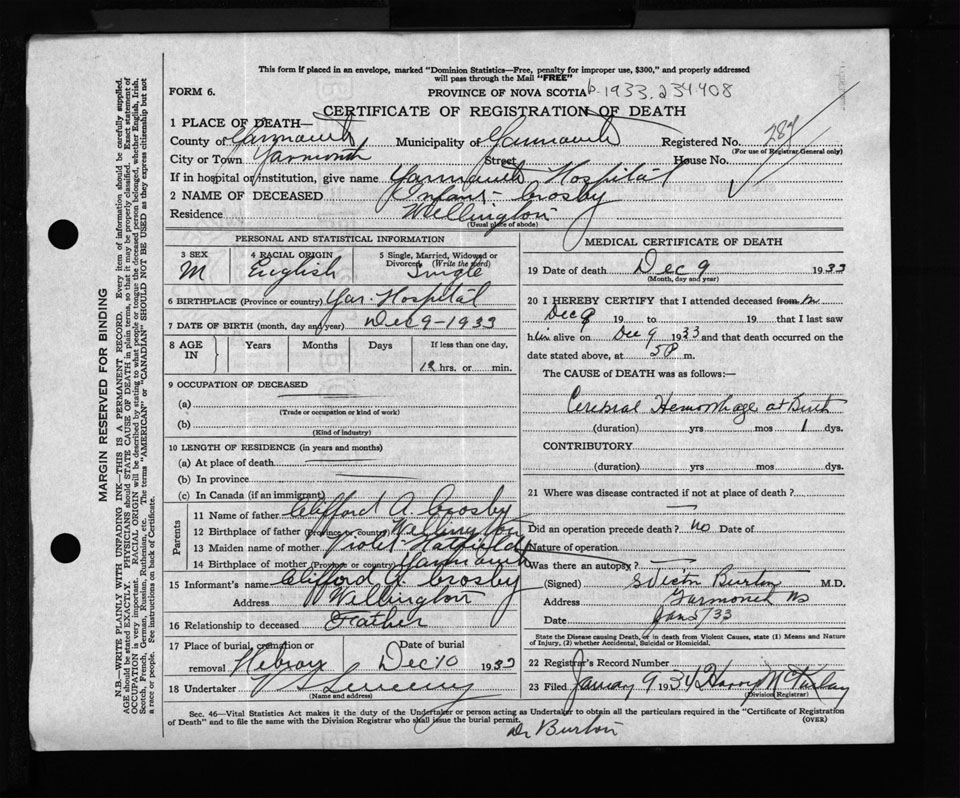 This form if placed in an envelope, marked "Dominion Statistics—Free, penalty for improper use, $300," and properly addressed
will pass through the Mail "FREE"
FORM 6. PROVINCE OF NOVA SCOTIA 1933.234408
CERTIFICATE OF REGISTRATION OF DEATH
1 PLACE OF DEATH—
County of Yarmouth Municipality of Yarmouth Registered No.
(For use of Registrar General only)
City or Town Yarmouth Street House No.
If in hospital or institution, give name Yarmouth Hospital
2 NAME OF DECEASED Infant Crosby
Residence Wellington
(Usual place of abode)
PERSONAL AND STATISTICAL INFORMATION
3 SEX 4 RACIAL ORIGIN 5 Single, Married, Widowed or Divorced (Write the word)
M English Single
6 BIRTHPLACE (Province or country) Yar. Hospital
7 DATE OF BIRTH (month, day and year) Dec 9-1933
8 AGE IN Years Months Days If less than one day,
12 hrs. or min.
9 OCCUPATION OF DECEASED
(a)
(Trade or occupation or kind of work)
(b)
(Kind of industry)
10 LENGTH OF RESIDENCE (in years and months)
(a) At place of death
(b) In province
(c) In Canada (if an immigrant)
Parents
11 Name of father Clifford A. Crosby
12 Birthplace of father (Province or country) Wellington
13 Maiden name of mother Violet Hatfield
14 Birthplace of mother (Province or country) Yarmouth
15 Informant's name Clifford A. Crosby
Address Wellington
16 Relationship to deceased Father
17 Place of burial, cremation or removal Hebron Date of burial Dec 10 1933
18 Undertaker V S Sweeny
(Name and address)
MEDICAL CERTIFICATE OF DEATH
19 Date of death Dec 9 1933
(Month, day and year)
20 I HEREBY CERTIFY that I attended deceased from
Dec 9 19 to 19 that I last saw
him alive on Dec 9 1933 and that death occurred on the
date stated above, at 5 P m.
The CAUSE of DEATH was as follows:—
Cerebral Hemorrhage at Birth
(duration) yrs mos 1 dys.
CONTRIBUTORY
(duration) yrs mos dys.
21 Where was disease contracted if not at place of death?
Did an operation precede death? no Date of
Nature of operation
Was there an autopsy?
(Signed) S Victor Burton M.D.
Address Yarmouth NS
Date Jan 5/33
State the Disease causing Death, or in death from Violent Causes, state (1) Means and Nature
of Injury, (2) whether Accidental, Suicidal or Homicidal.
22 Registrar's Record Number
23 Filed January 9 1934
(Division Registrar)
Sec. 46—Vital Statistics Act makes it the duty of the Undertaker or person acting as Undertaker to obtain all the particulars required in the "Certificate of Registration
of Death" and to file the same with the Division Registrar who shall issue the burial permit. (OVER)
Dr Burton
MARGIN RESERVED FOR BINDING
N.B.—WRITE PLAINLY WITH UNFADING INK—THIS IS A PERMANENT RECORD. Every item of information should be carefully supplied.
AGE should be stated EXACTLY. PHYSICIANS should STATE CAUSE OF DEATH in plain terms, so that it may be properly classified. Exact statement of
OCCUPATION is very important. RACIAL ORIGIN will be described by stating to what people or tongue the deceased person belonged, whether English, Irish,
Scotch, French, German, Russian, Ruthenian, etc. The terms "AMERICAN" or "CANADIAN" SHOULD NOT BE USED as they express citizenship but not
a race or people. See instructions on back of Certificate.